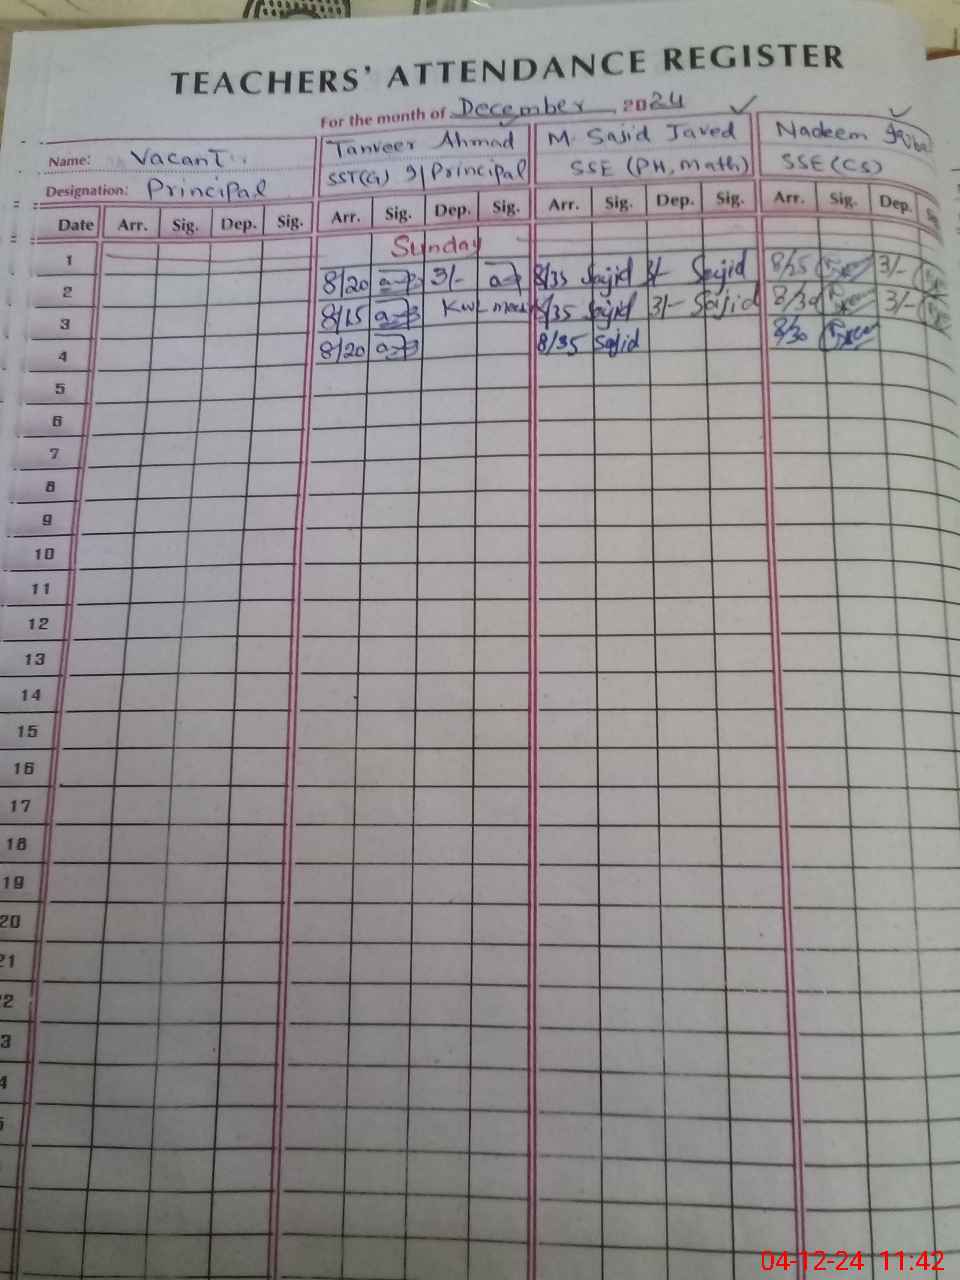 TEACHERS' ATTENDANCE REGISTER
For the month of December 2024
Name: Vacant Tanveer Ahmad M. Sajid Javed Nadeem Iqbal
Designation: Principal SST(G) I/Principal SSE (PH, Math) SSE (CS)
Date Arr. Sig. Dep. Sig. Arr. Sig. Dep. Sig. Arr. Sig. Dep. Sig. Arr. Sig. Dep.
1 Sunday
2 8/20 3/- 8/35 Sajid 3/- Sajid 8/25 3/-
3 8/15 8/35 Sajid 3/- Sajid 8/30 3/-
4 8/20 8/35 Sajid 8/30
5
6
7
8
9
10
11
12
13
14
15
16
17
18
19
20
21
22
3
4
04-12-24 11:42